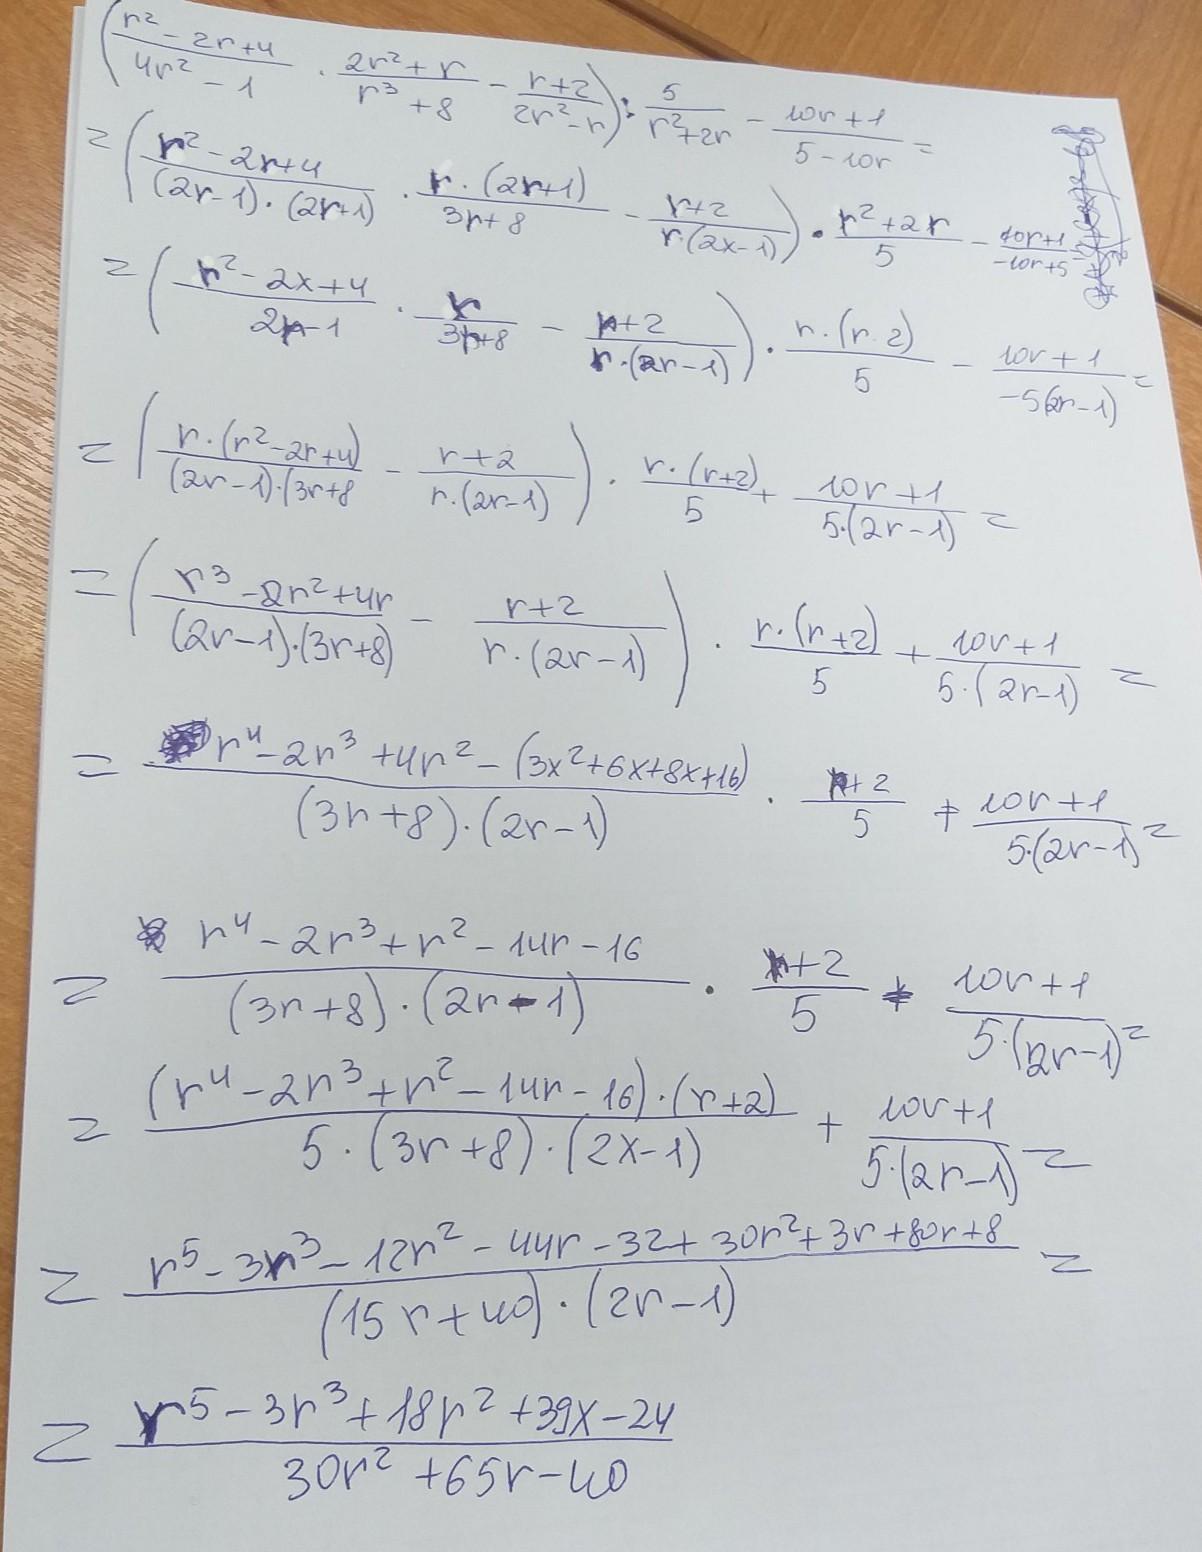 (r²-2r+4)/(4r²-1) · (2r²+r)/(r³+8) - (r+2)/(2r²-r)) : 5/(r²+2r) - (10r+1)/(5-10r) =
= ((r²-2r+4)/((2r-1)·(2r+1)) · (r·(2r+1))/(3r+8) - (r+2)/(r·(2x-1))) · (r²+2r)/5 - (10r+1)/(-10r+5)
= ((r²-2x+4)/(2r-1) · r/(3r+8) - (r+2)/(r·(2r-1))) · (r·(r·2))/5 - (10r+1)/(-5(2r-1)) =
= ((r·(r²-2r+4))/((2r-1)·(3r+8) - (r+2)/(r·(2r-1))) · (r·(r+2))/5 + (10r+1)/(5·(2r-1)) =
= ((r³-2r²+4r)/((2r-1)·(3r+8)) - (r+2)/(r·(2r-1))) · (r·(r+2))/5 + (10r+1)/(5·(2r-1)) =
= (r⁴-2r³+4r²-(3x²+6x+8x+16))/((3r+8)·(2r-1)) · (r+2)/5 + (10r+1)/(5·(2r-1)) =
= (r⁴-2r³+r²-14r-16)/((3r+8)·(2r-1)) · (r+2)/5 + (10r+1)/(5·(2r-1)) =
= ((r⁴-2r³+r²-14r-16)·(r+2))/(5·(3r+8)·(2x-1)) + (10r+1)/(5·(2r-1)) =
= (r⁵-3r³-12r²-44r-32+30r²+3r+80r+8)/((15r+40)·(2r-1)) =
= (r⁵-3r³+18r²+39x-24)/(30r²+65r-40)